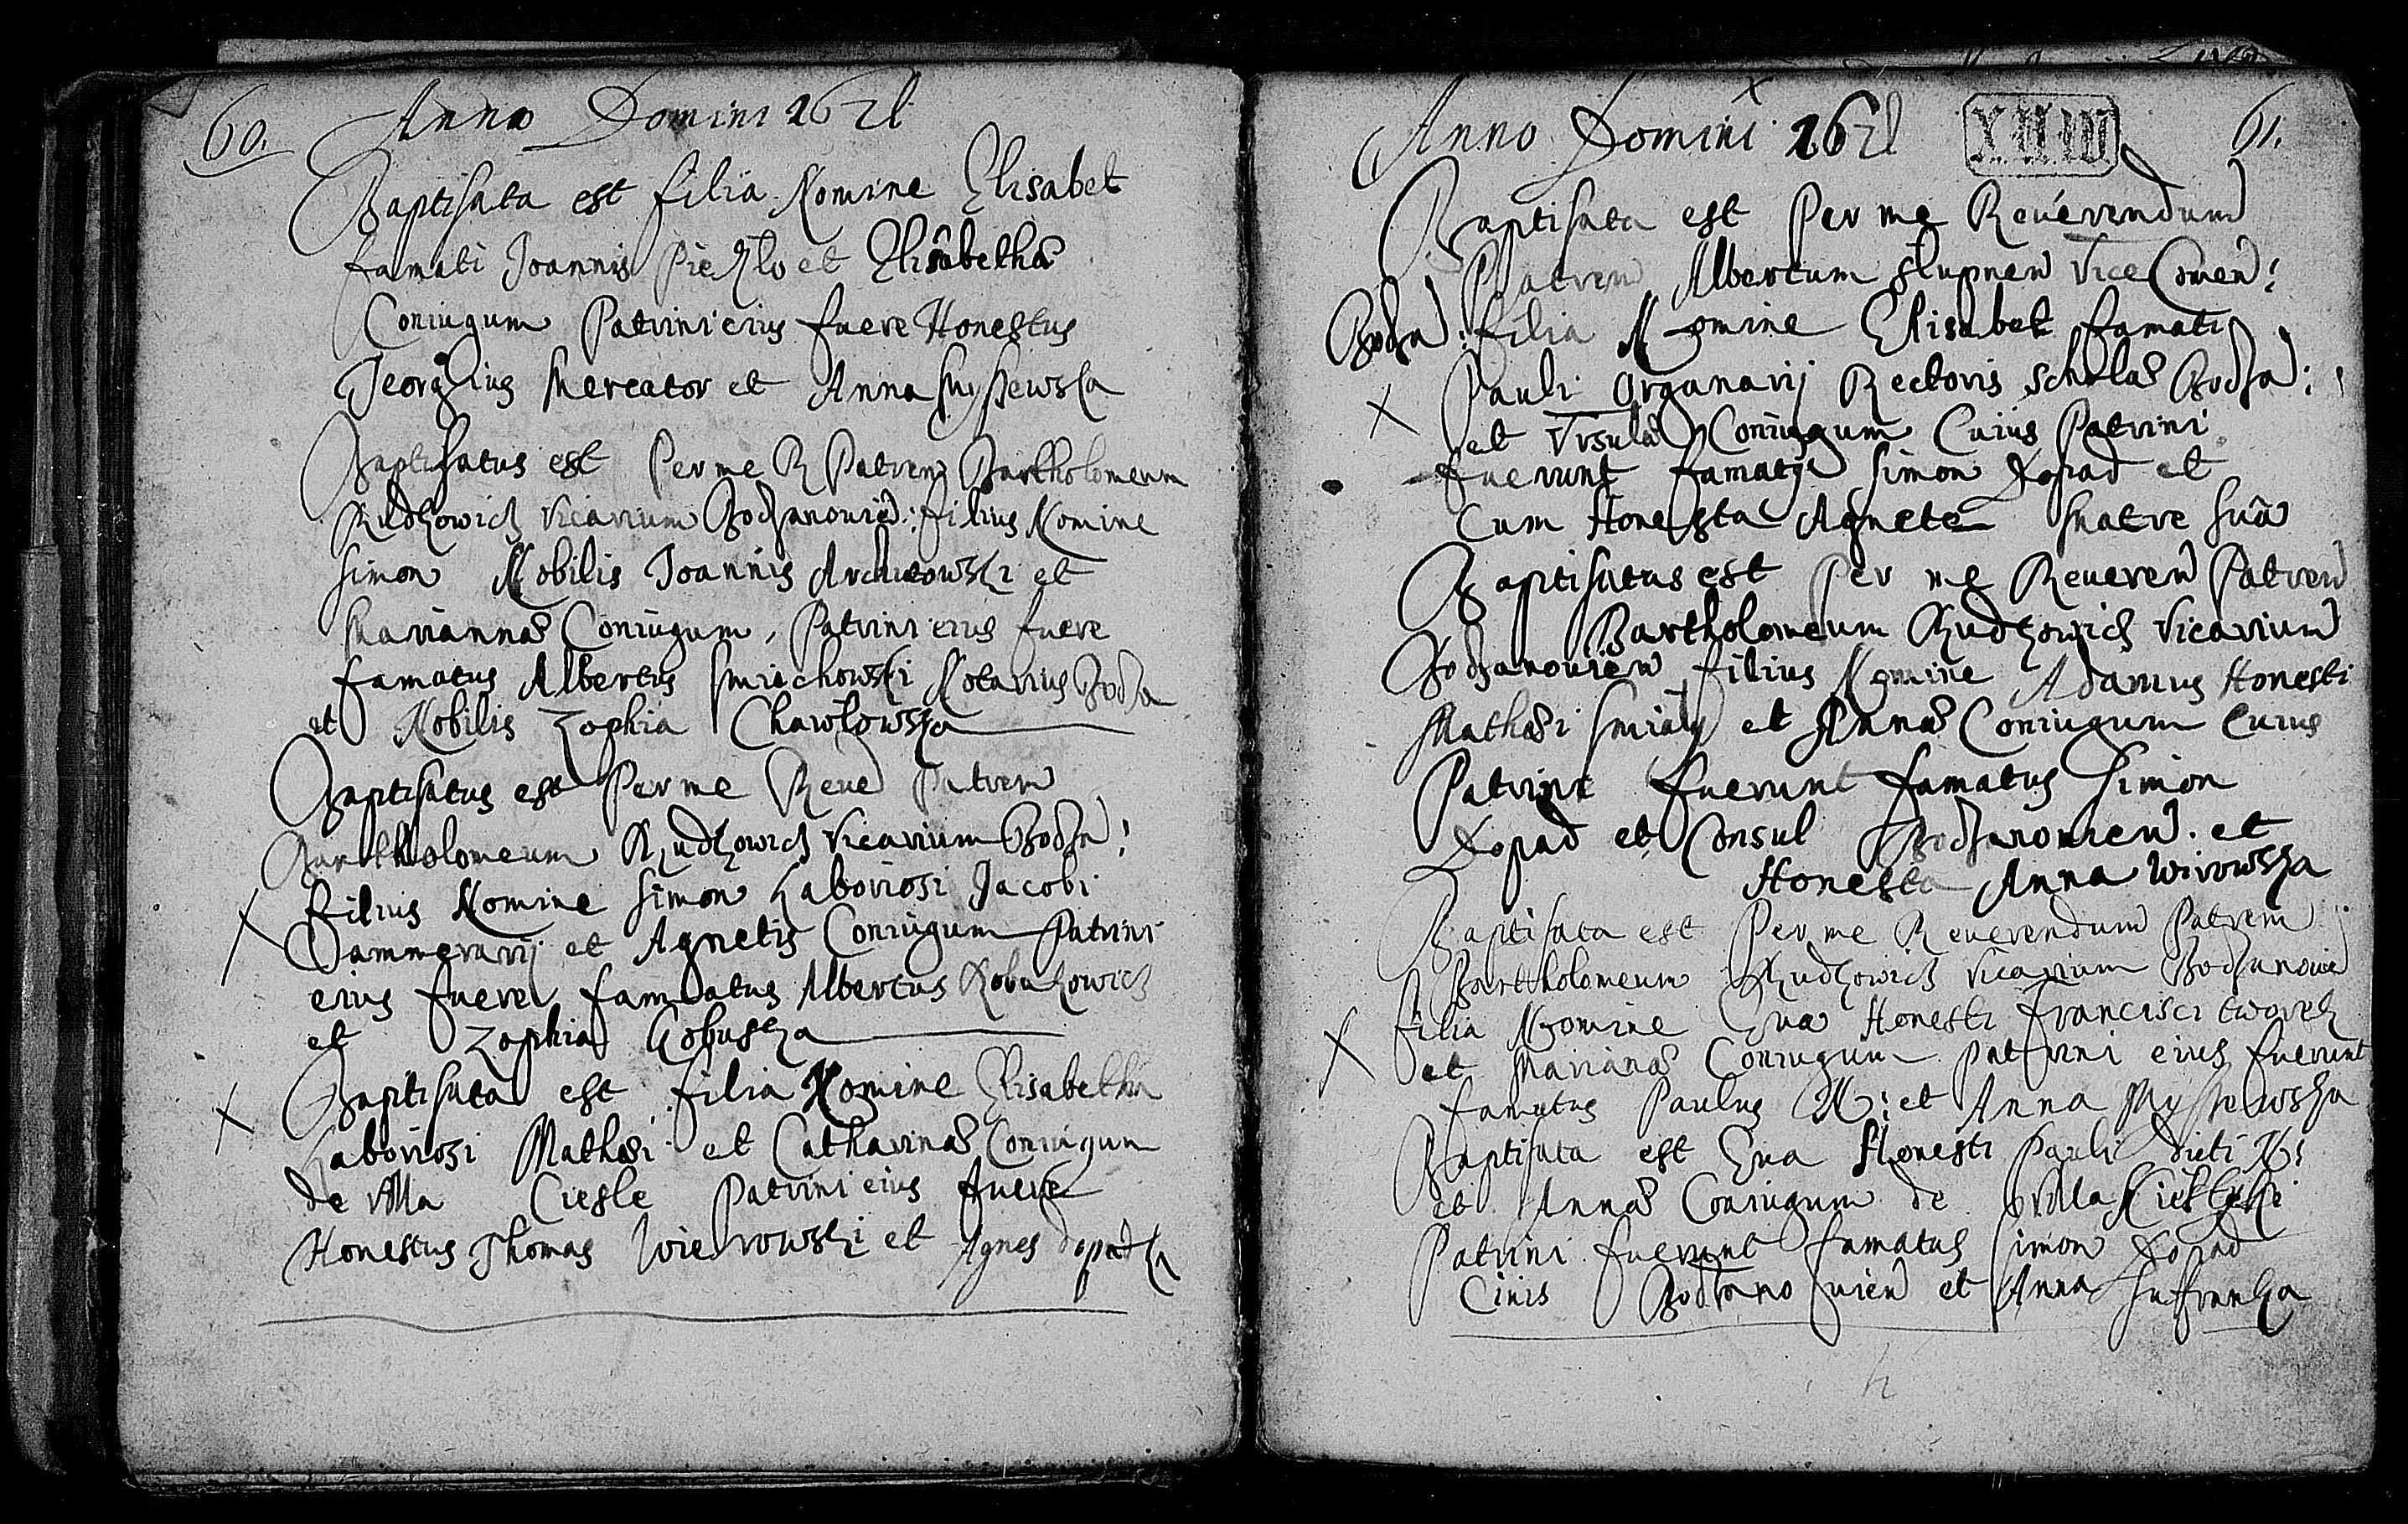 60.
Anno Domini 1621
Baptisata est filia Nomine Elisabet
famati Joannis et Elisabetha
Coniugum Patrini eius fuere Honestus
Georgius Mercator et Anna Myszewska
Baptisatus est Per me R Patrem Bartholomeum
Rudzowicz vicarium Bodzanouien: filius Nomine
Simon Nobilis Joannis et
Mariannae Coniugum, Patrini eius fuere
famatus Albertus Smiechowski Notarius Bodza
et Nobilis Zophia Chawlowska
Baptisatus est Per me Reue Patrem
Bartholomeum Rudzowicz vicarium Bodza:
filius Nomine Simon Laboriosi Jacobi
et Agnetis Coniugum Patrini
eius fuere famatus Albertus
et Zophia
Baptisata est filia Nomine Elisabetha
Laboriosi Mathaei et Catharinae Coniugum
de villa Ciesle Patrini eius fuere
Honestus Thomas Wierowski et Agnes
Anno Domini 1621
XIIW
61.
Baptisata est Per me Reuerendum
Patrem Albertum Slupnen Vice Comen:
Bodza: filia Nomine Elisabet famati
Pauli Organarij Rectoris scholae Bodza:
et Vrsula Coniugum Cuius Patrini
fuerunt famatus Simon Kopad et
Cum Honesta Agnete Matre sua
Baptisatus est Per me Reueren Patrem
Bartholomeum Rudzowicz Vicarium
Bodzanouien filius Nomine Adamus Honesti
Mathaei Smialy et Annae Coniugum Cuius
Patrini fuerunt famatus Simon
Kopad et Consul Bodzanouien. et
Honesta Anna Wirowska
Baptisata est Per me Reuerendum Patrem
Bartholomeum Rudzowicz vicarium Bodzanouie
filia Nomine Eua Honesti Francisci
et Marianae Coniugum Patrini eius fuerunt
famatus Paulus et Anna Myszewska
Baptisata est Eua Honesti Pauli dicti
et Annae Coniugum de Villa
Patrini fuerunt famatus Simon Kopad
Ciuis Bodzanouien et Anna